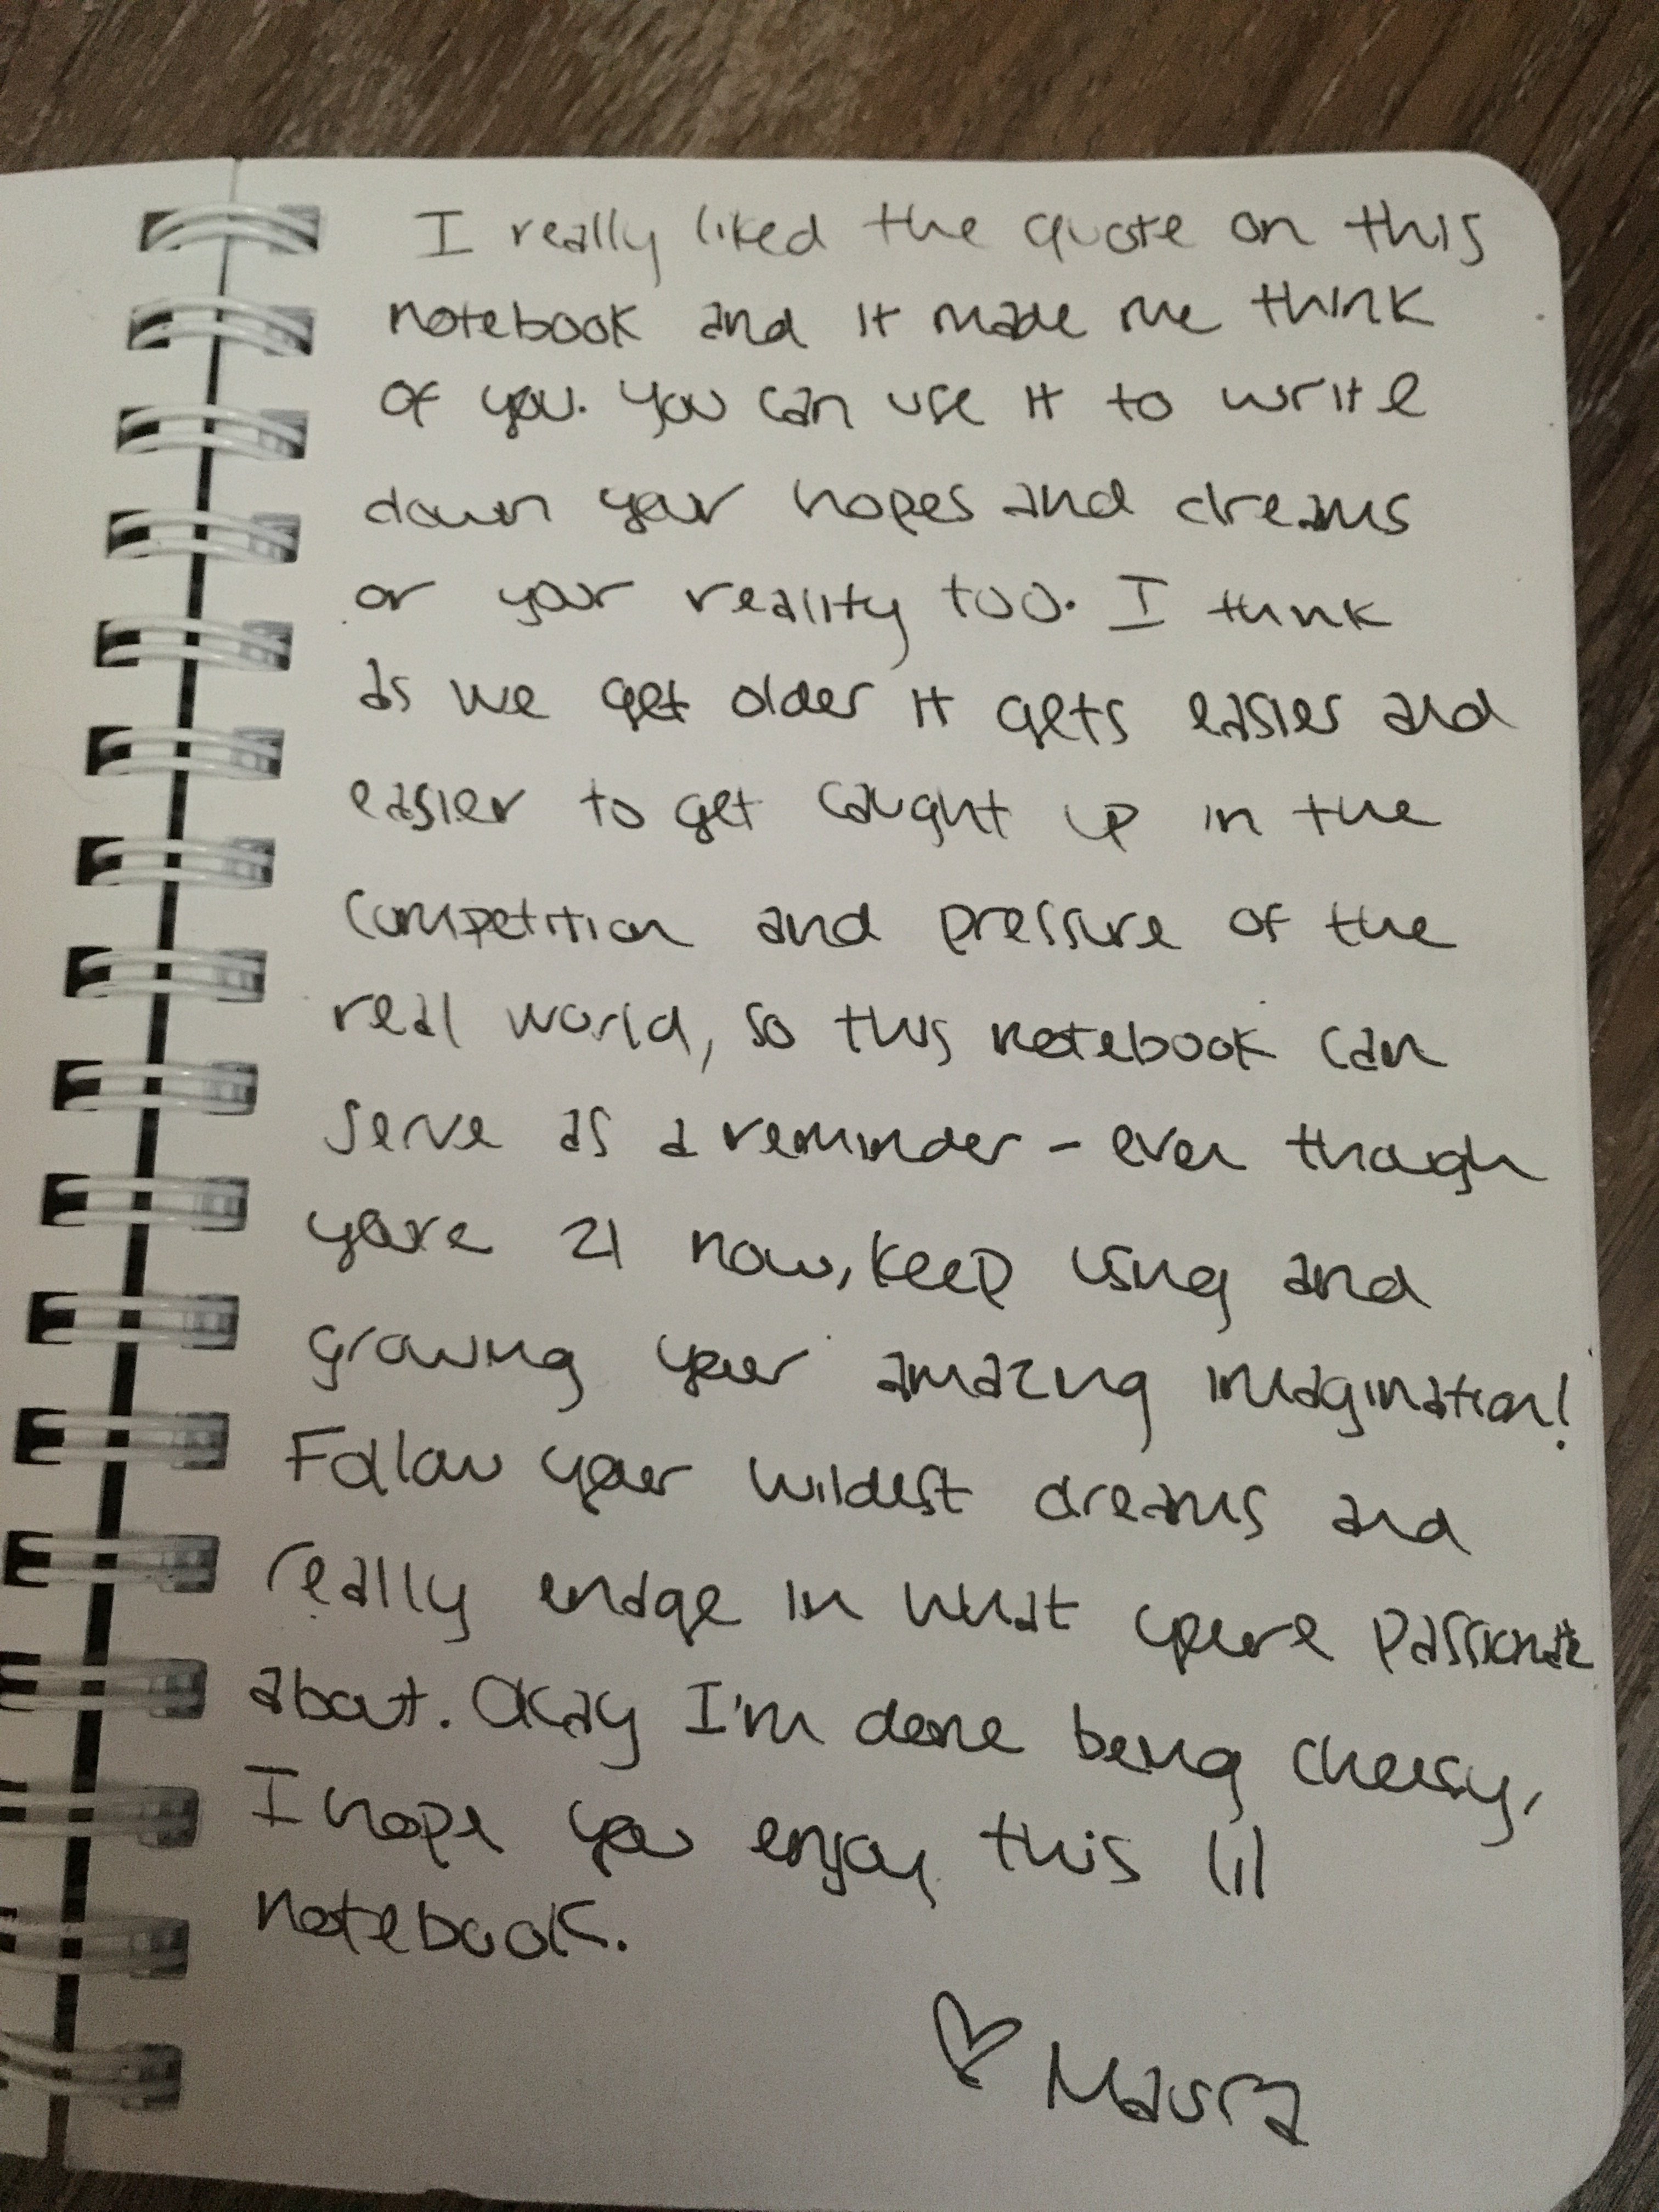 I really liked the quote on this
notebook and it made me think
of you. You can use it to write
down your hopes and dreams
or your reality too. I think
as we get older it gets easier and
easier to get caught up in the
competition and pressure of the
real world, so this notebook can
serve as a reminder - even though
youre 21 now, keep using and
growing your amazing imagination!
Follow your wildest dreams and
really endage in what youre passionate
about. Okay I'm done being cheesy,
I hope you enjoy this lil
notebook.
♡ Maura